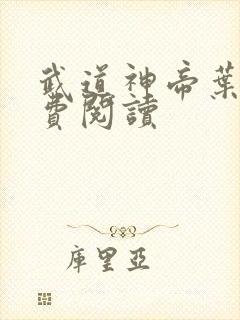 武道神帝葉
費閱讀
庫里亞